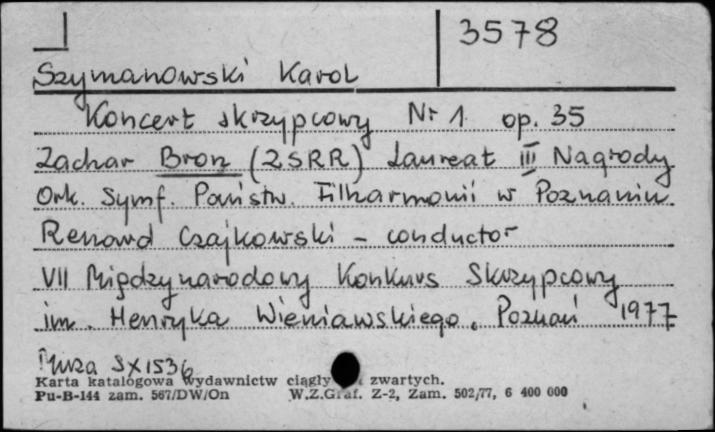 3578
Szymanowski Karol
Koncert skrzypcowy Nr 1 op. 35
Zachar Bron (ZSRR) Laureat III Nagrody
Ork. Symf. Państw. Filharmonii w Poznaniu
Renard Czajkowski - conductor
VII Międzynarodowy Konkurs Skrzypcowy
im. Henryka Wieniawskiego. Poznań 1977
Muza SX1536
Karta katalogowa wydawnictw ciągły zwartych.
Pu-B-144 zam. 567/DW/On W.Z.Graf. Z-2, Zam. 502/77, 6 400 000